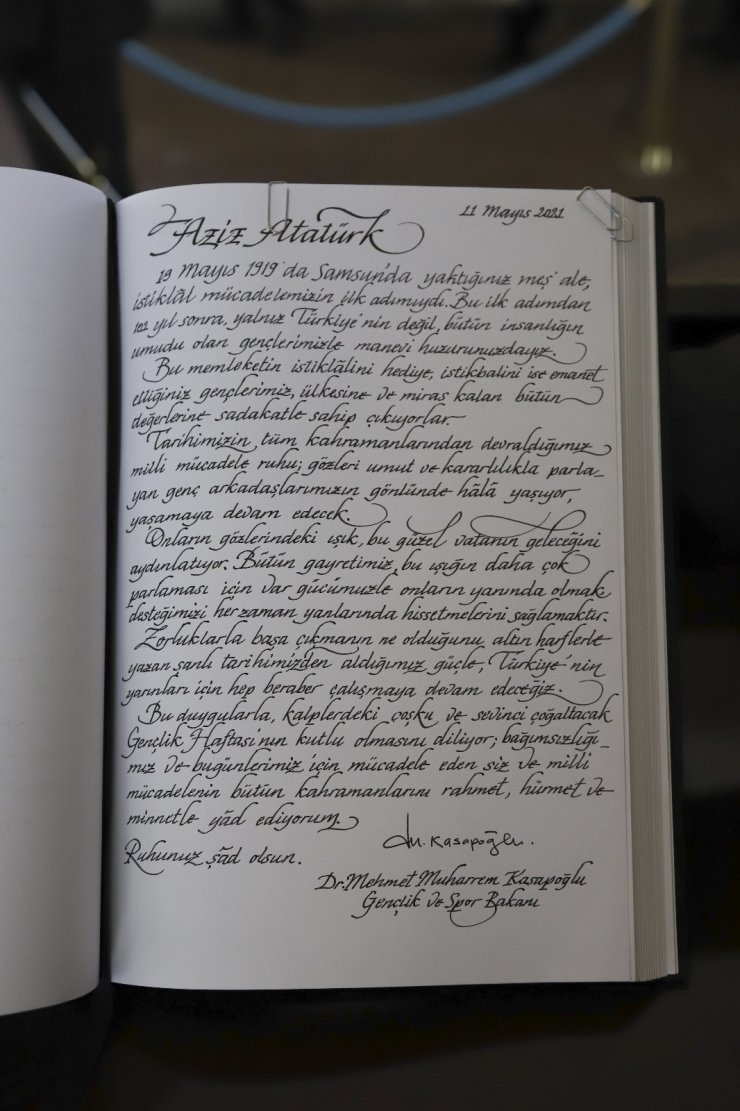 11 Mayıs 2021
Aziz Atatürk
19 Mayıs 1919'da Samsun'da yaktığınız meş'ale,
istiklâl mücadelemizin ilk adımıydı. Bu ilk adımdan
102 yıl sonra, yalnız Türkiye'nin değil, bütün insanlığın
umudu olan gençlerimizle manevi huzurunuzdayız.
Bu memleketin istiklâlini hediye, istikbalini ise emanet
ettiğiniz gençlerimiz, ülkesine ve miras kalan bütün
değerlerine sadakatle sahip çıkıyorlar.
Tarihimizin tüm kahramanlarından devraldığımız
milli mücadele ruhu; gözleri umut ve kararlılıkla parla-
yan genç arkadaşlarımızın gönlünde hâlâ yaşıyor,
yaşamaya devam edecek.
Onların gözlerindeki ışık, bu güzel vatanın geleceğini
aydınlatıyor. Bütün gayretimiz, bu ışığın daha çok
parlaması için var gücümüzle onların yanında olmak
desteğimizi her zaman yanlarında hissetmelerini sağlamaktır.
Zorluklarla başa çıkmanın ne olduğunu altın harflerle
yazan şanlı tarihimizden aldığımız güçle, Türkiye'nin
yarınları için hep beraber çalışmaya devam edeceğiz.
Bu duygularla, kalplerdeki coşku ve sevinci çoğaltacak
Gençlik Haftası'nın kutlu olmasını diliyor; bağımsızlığı-
mız ve bugünlerimiz için mücadele eden siz ve milli
mücadelenin bütün kahramanlarını rahmet, hürmet ve
minnetle yâd ediyorum.
M. Kasapoğlu.
Ruhunuz şâd olsun.
Dr. Mehmet Muharrem Kasapoğlu
Gençlik ve Spor Bakanı